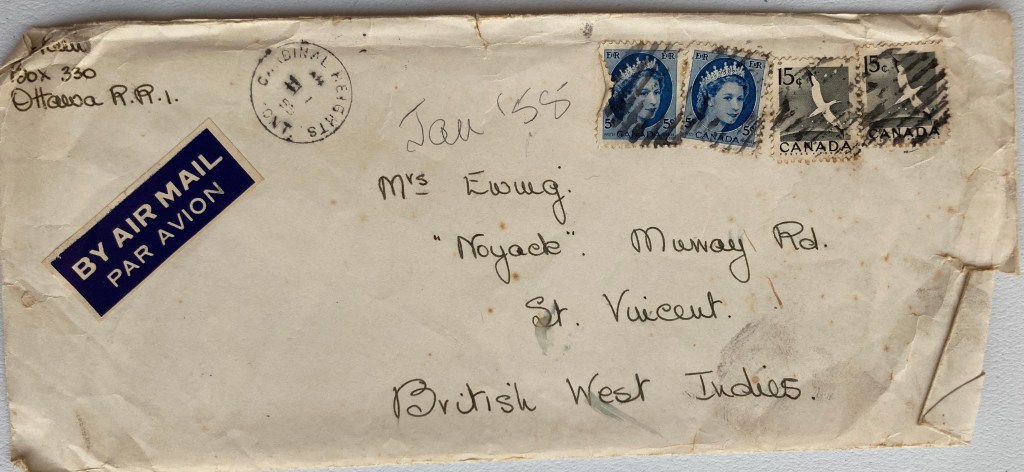 Box 330
Ottawa R.R.1.
CARDINAL HEIGHTS.
ONT.
Jan '58
E II R
5¢ CANADA 5¢
E II R
5¢ CANADA 5¢
15¢
CANADA
15¢
CANADA
BY AIR MAIL
PAR AVION
Mrs Ewing.
"Noyack". Murray Rd.
St. Vincent.
British West Indies.